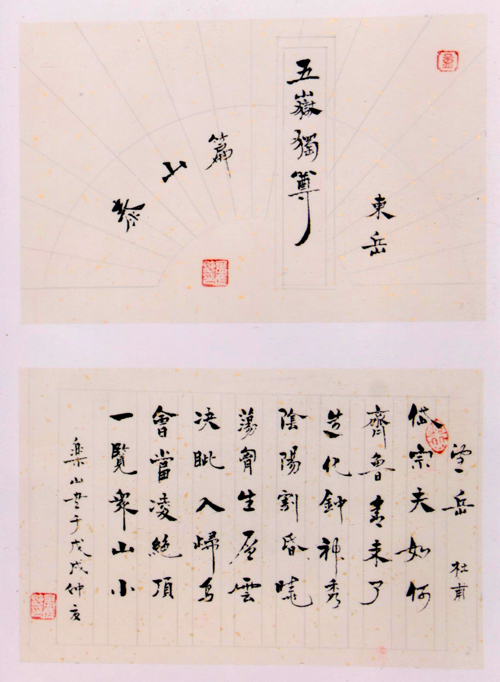 東岳
五嶽獨尊
泰山篇
望岳 杜甫
岱宗夫如何
齊魯青未了
造化鐘神秀
陰陽割昏曉
蕩胷生层雲
决眦入歸鳥
會當凌絶頂
一覽眾山小
樂山書于戊戌仲夏